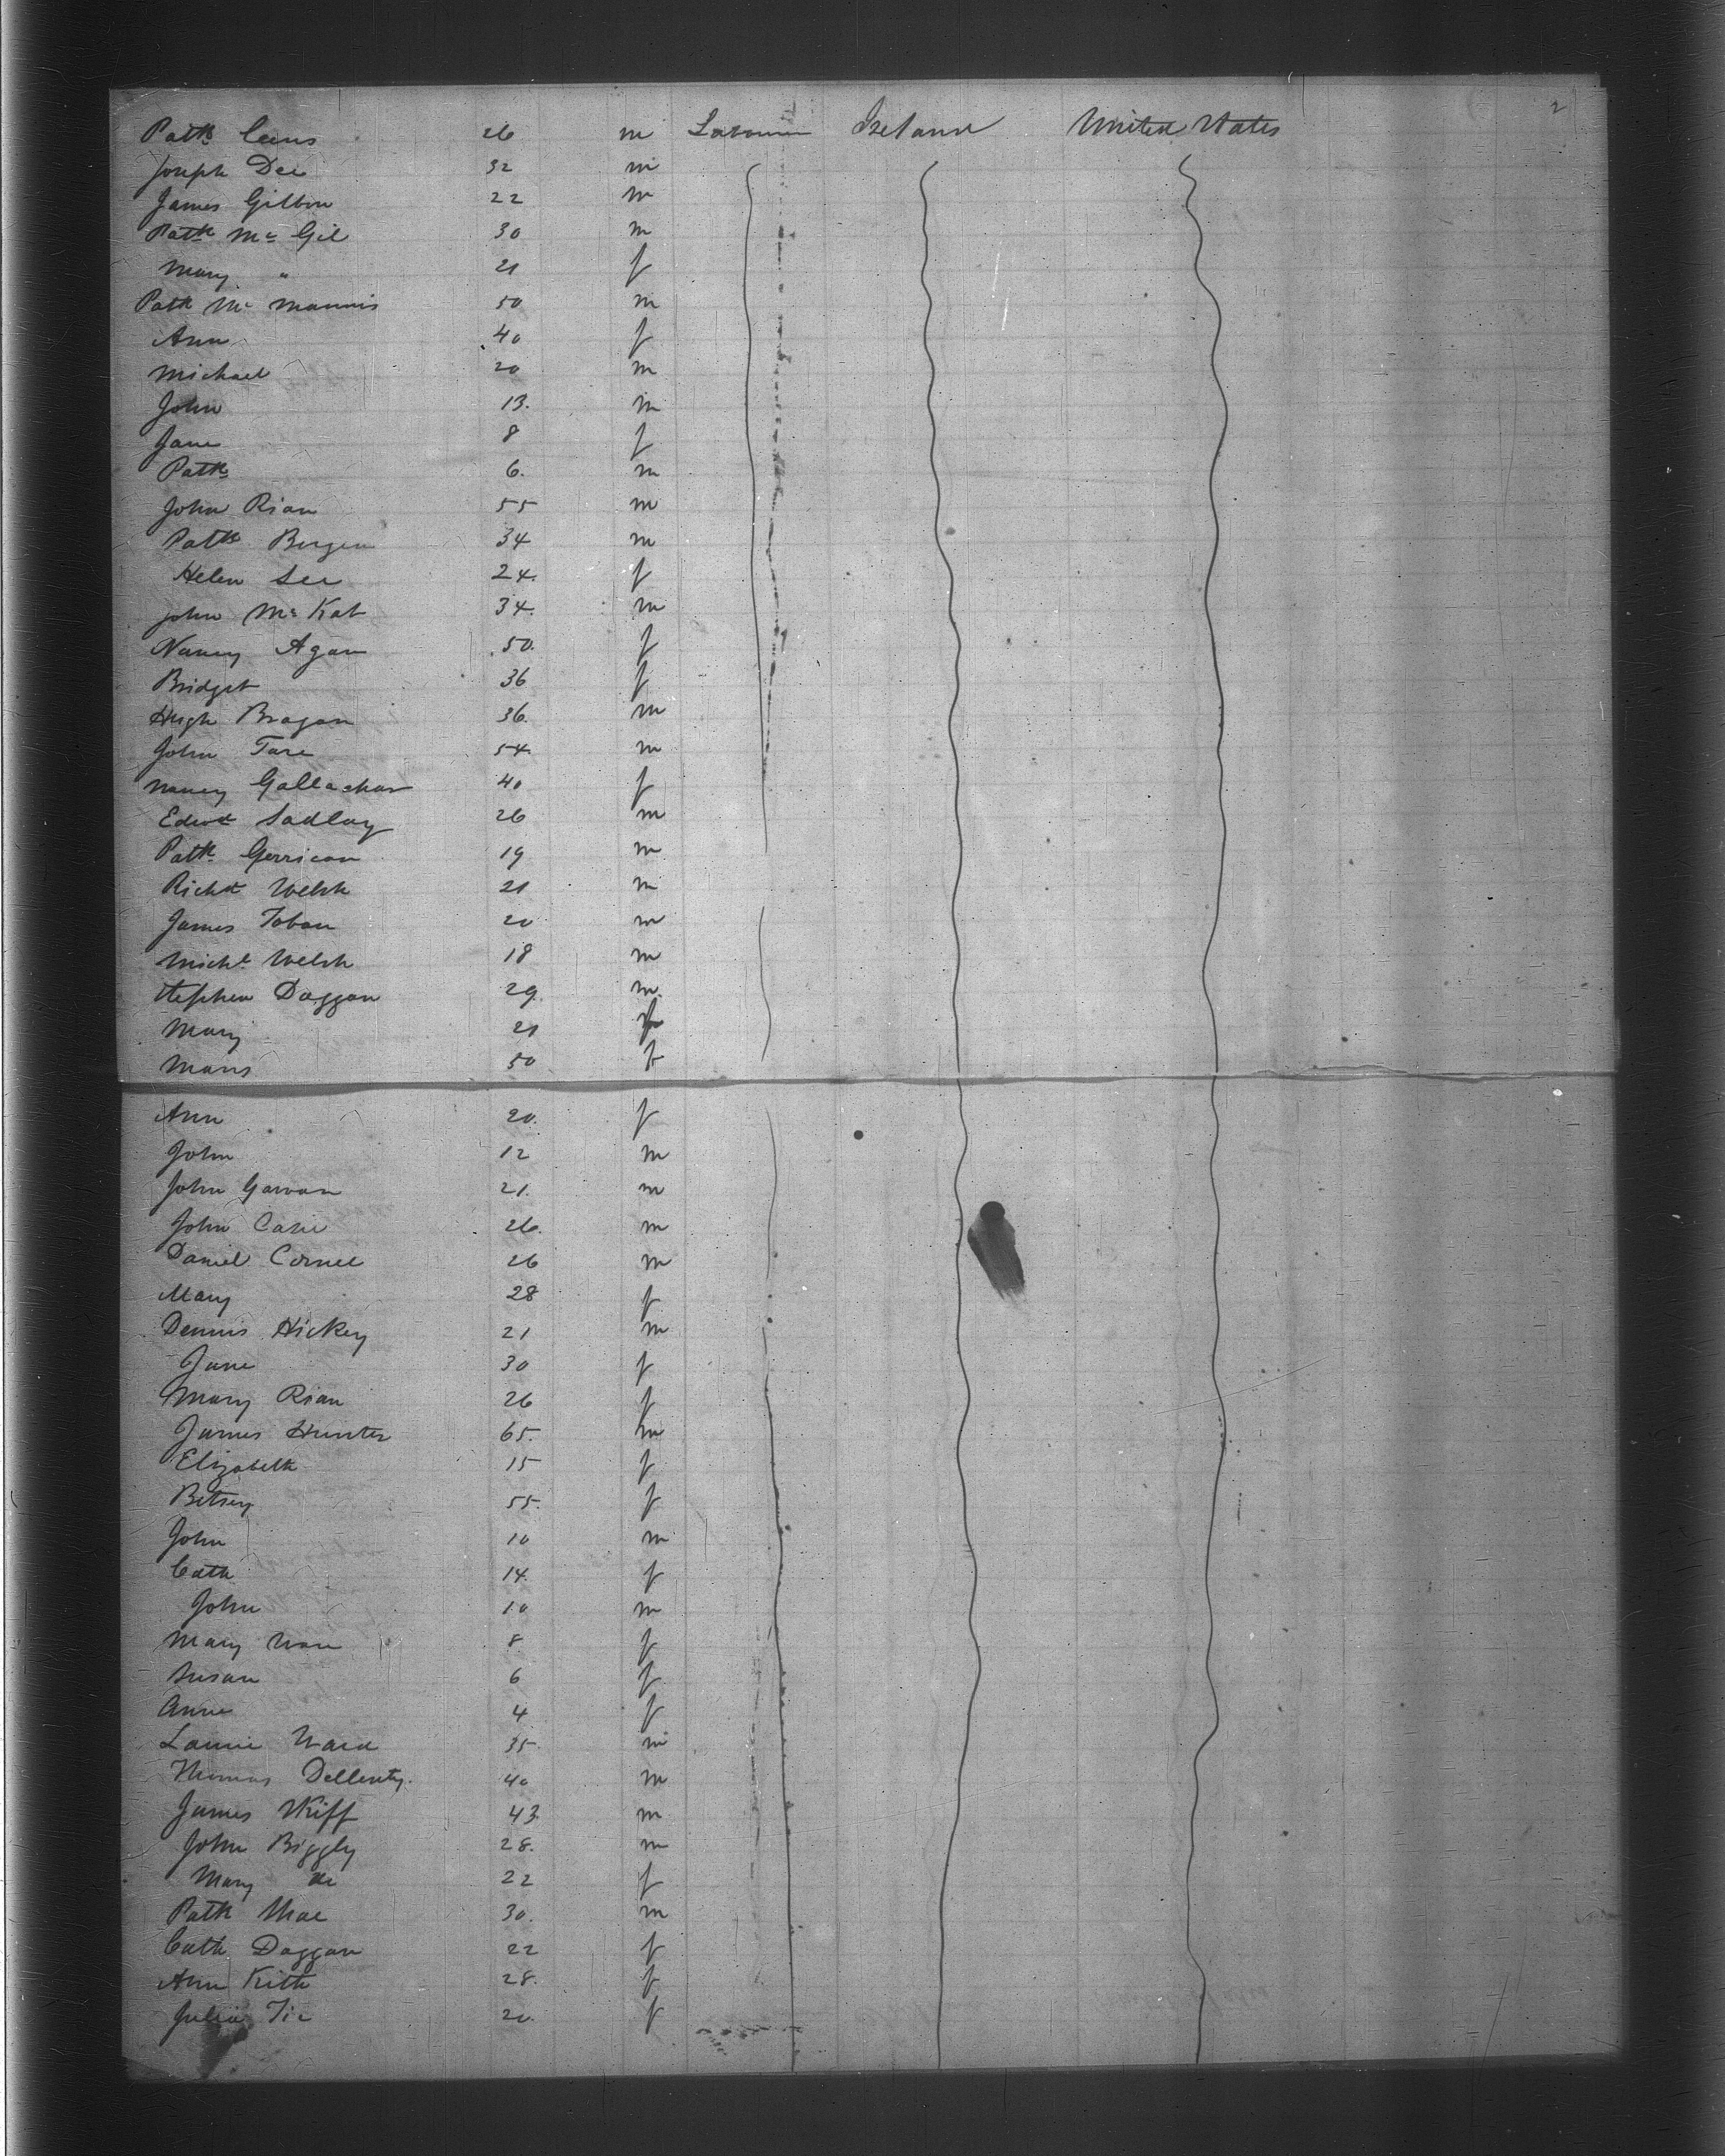 2
Patk Ceens 26 m Ireland United States
Joseph Dee 32 m
James Gibbon 22 m
Patk Mc Gil 30 m
Mary " 21 f
Patk Mc Mannis 50 m
Ann 40 f
Michael 20 m
John 13. m
Jane 8 f
Patk 6. m
John Rian 55 m
Patk Bergen 34 m
Helen Lee 24. f
John Mc Kat 34. m
Nancy Agan 50. f
Bridget 36 f
Hugh Bragan 36. m
John Tare 54. m
Nancy Gallachar 40 f
Edwd Sadlay 26 m
Patk Gerrican 19 m
Richd Welsh 21 m
James Toban 20 m
Michl Welsh 18 m
Stephen Daggan 29. m.
Mary 21 f
50 f
Ann 20. f
John 12 m
John Gawan 21. m
John Casie 26. m
Daniel Cornel 26 m
Mary 28 f
Dennis Hickey 21 m
Jane 30 f
Mary Rian 26 f
James Hunter 65. m
Elizabeth 15 f
Betsey 55. f
John 10 m
Cath 14. f
John 10 m
Mary 8 f
Susan 6 f
Anne 4 f
Ward 35. m
Thomas Dellenty. 40 m
James Skiff 43. m
John Biggly 28. m
Mary do 22 f
Patk 30. m
Cath Daggan 22 f
Ann Kith 28. f
Julia Tie 20. f